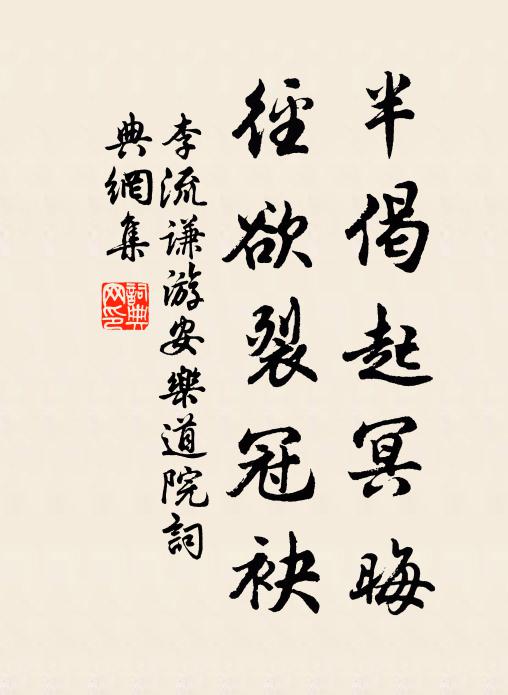 半偈起冥晦
徑欲裂冠袂
李流谦游安樂道院詞
典網集
詞典网印